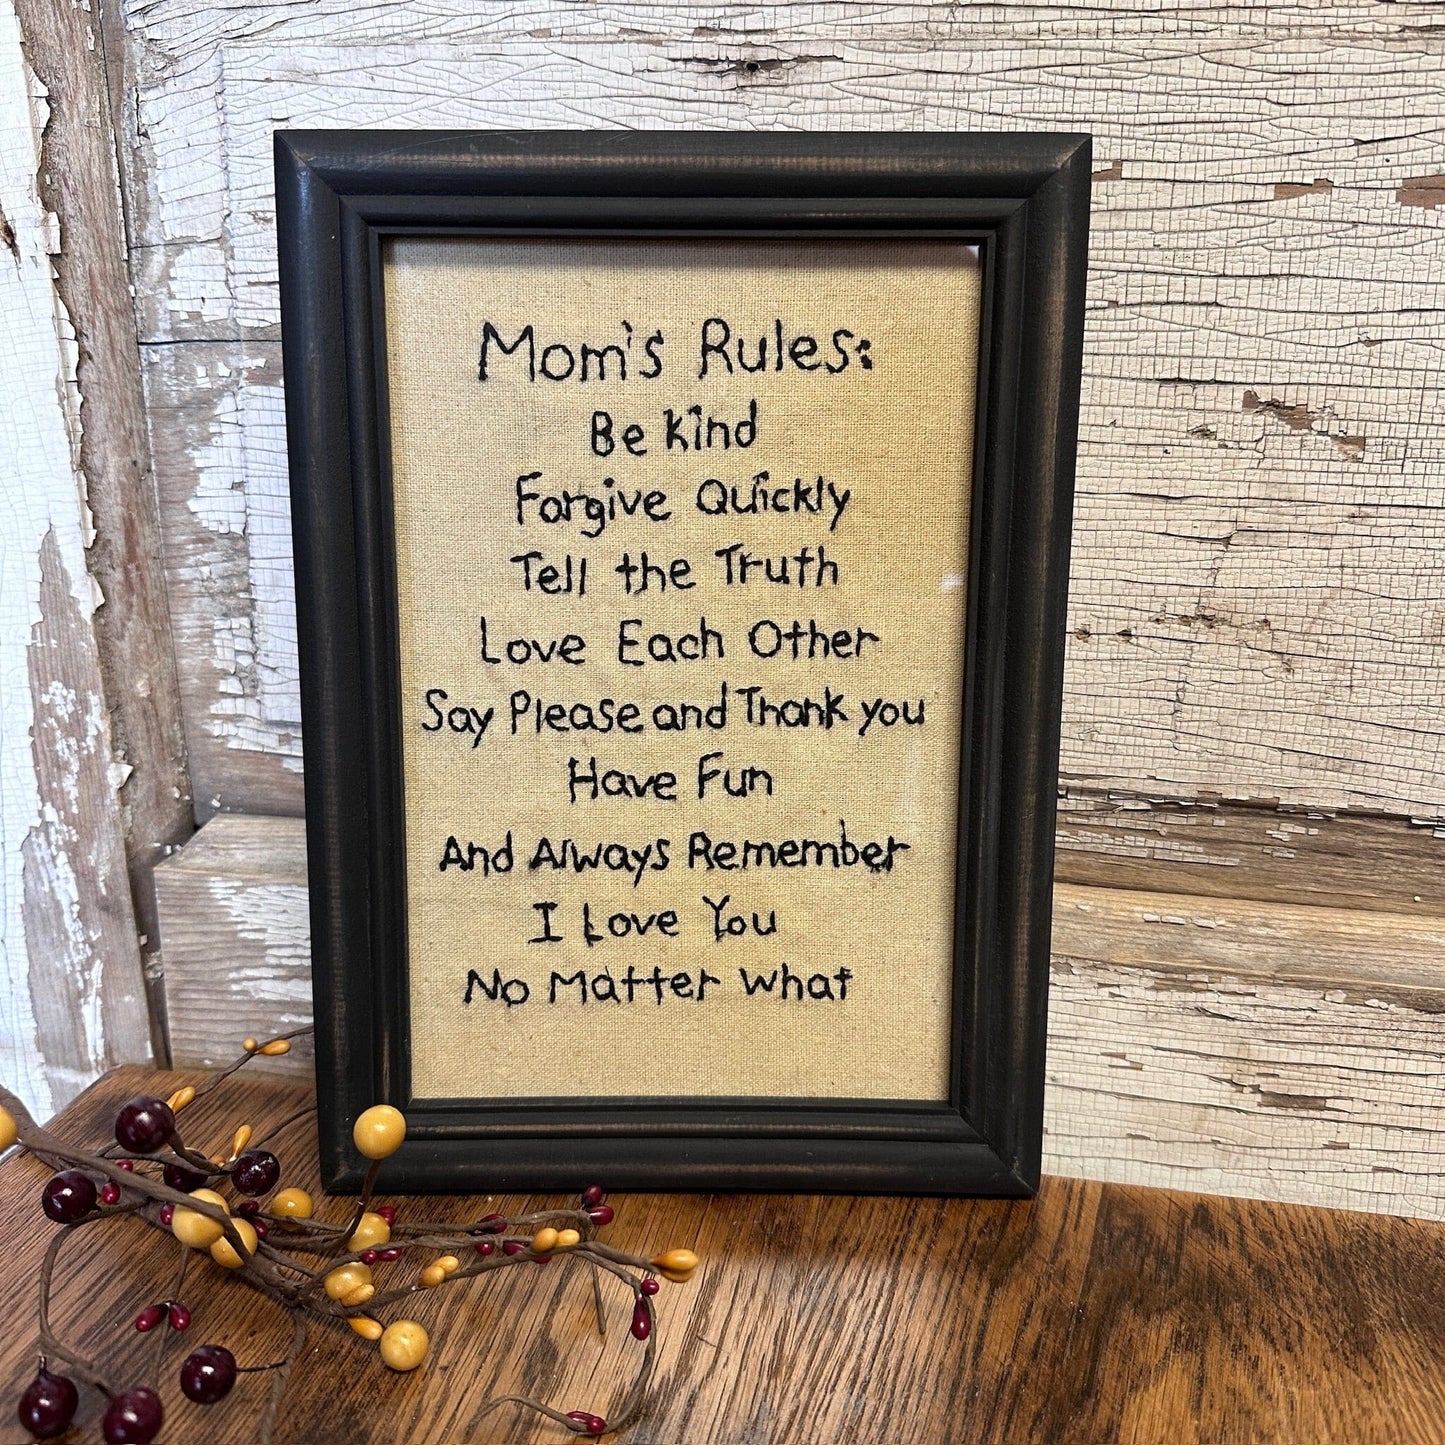 Mom's Rules:
Be Kind
Forgive Quickly
Tell the Truth
Love Each Other
Say Please and Thank you
Have Fun
And Always Remember
I Love You
No Matter What